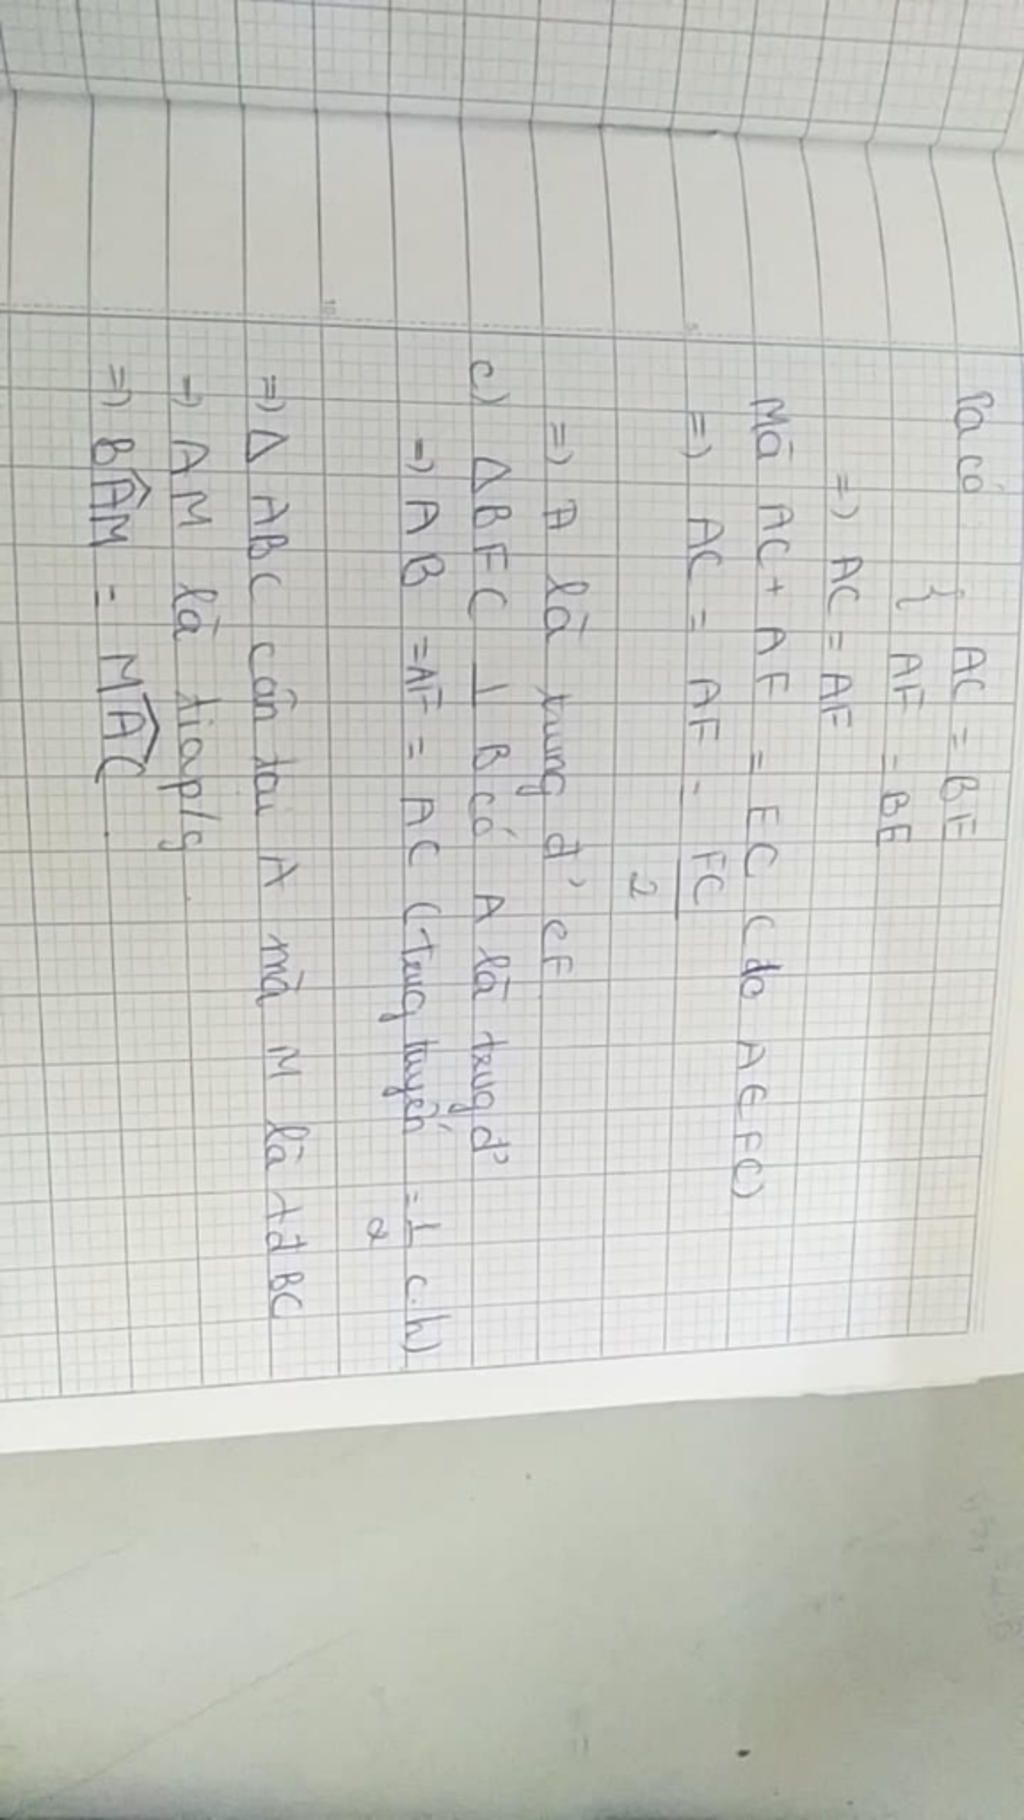 Ta có { AC = BF
AF = BE
=) AC = AF
Mà AC + AF = EC (do A ∈ FC)
=) AC = AF = FC/2
=) A là trung đ' CF
c) Δ BFC ⊥ B có A là trug đ'
=) AB = AF = AC (trug tuyến = 1/2 c.h)
=) Δ ABC cân tại A mà M là tđ BC
=) AM là tia p/g
=) BÂM = MÂC
5
10